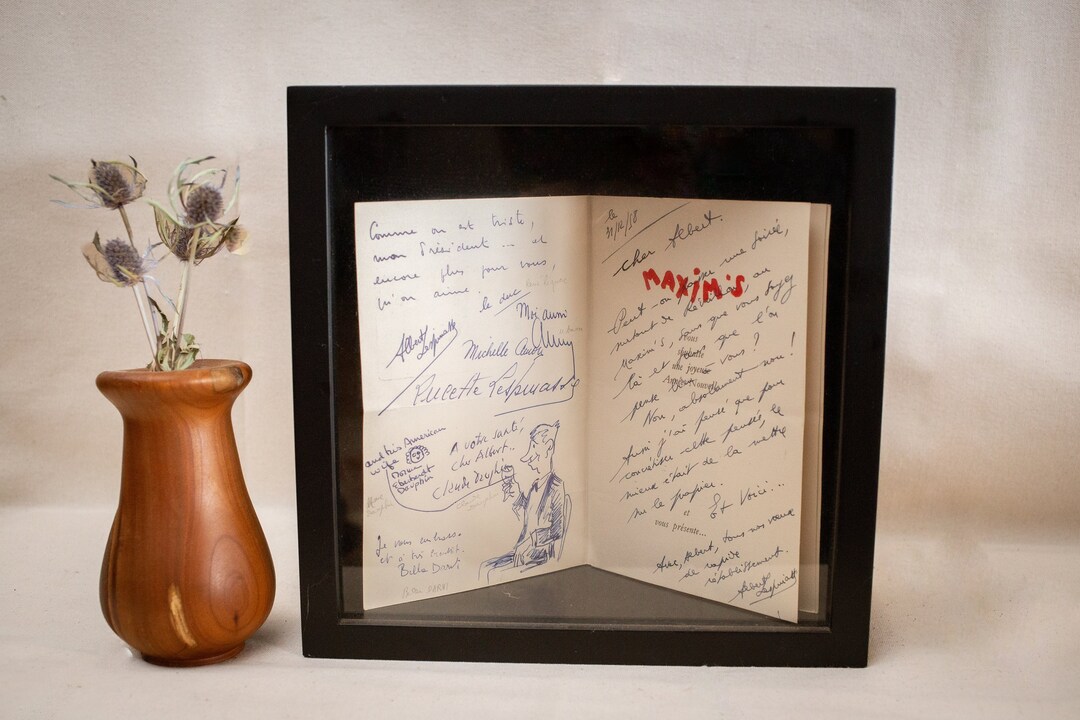 Comme on est triste,
mon Président ... et
encore plus pour vous,
qu'on aime.
le duc
Moi aussi
Albert
Lespinasse
Michelle
Lucette Lespinasse
and his American
wife
Norma
Eberhardt
Dauphin
A votre santé,
cher Albert..
Claude Dauphin
Je vous embrasse
et à très bientôt.
Billa Darvi
le
31/12/58
cher Albert.
MAXIM'S
Peut-on passer une soirée,
autant de Réveillon, au
Maxim's, sans que vous soyez
là et sans que l'on
pense à vous ?
Vous
souhaite
une joyeuse
Année Nouvelle
Non, absolument non !
Aussi j'ai pensé que pour
concrétiser cette pensée, le
mieux était de la mettre
sur le papier.
Et Voici...
et
vous présente...
Avec, Albert, tous nos vœux
de rapide
rétablissement.
Albert
Lespinasse